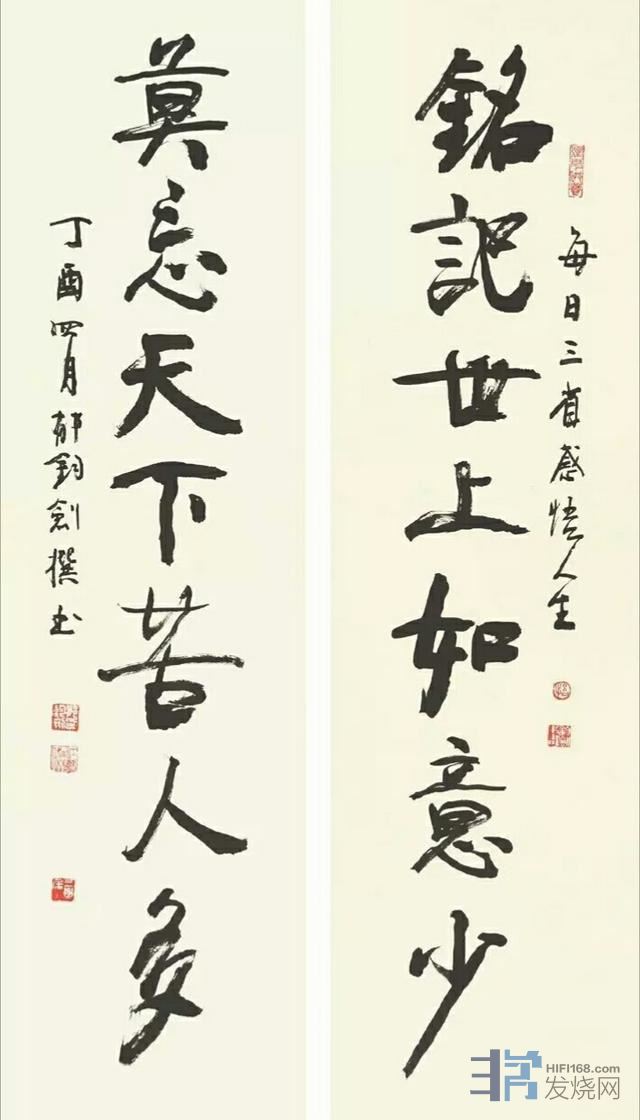 每日三省感悟人生
銘記世上如意少
莫忘天下苦人多
丁酉四月郁鈞劍撰书
HIFI168.com
发烧网